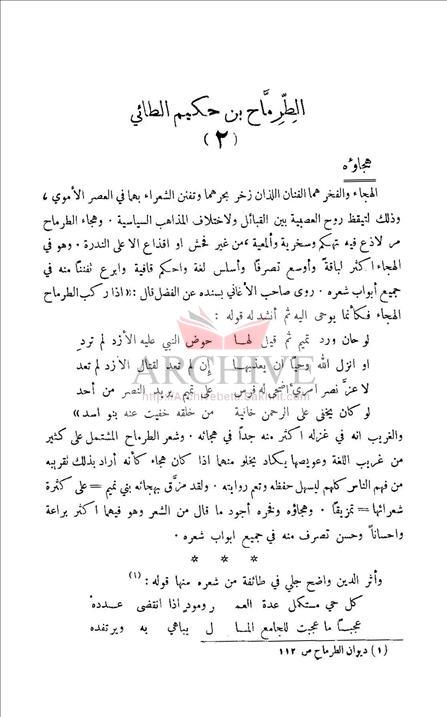 الطِّرِمَّاح بن حكيم الطائي
(٢)
هجاؤه
الهجاء والفخر هما الفنان اللذان زخر بحرهما وتفنن الشعراء بهما في العصر الأموي ،
وذلك لتيقظ روح العصبية بين القبائل ولاختلاف المذاهب السياسية . وهجاء الطرماح
مر لاذع فيه تهكم وسخرية وألمعية ، من غير فحش او اقذاع الا على الندرة . وهو في
الهجاء اكثر لباقة وأوسع تصرفاً وأسلس لغة واحكم قافية وابرع تفنناً منه في
جميع أبواب شعره . روى صاحب الأغاني بسنده عن الفضل قال : « اذا ركب الطرماح
الهجاء فكأنما يوحى اليه ثم أنشد له قوله :
لو حان ورد تميم ثم قيل لهـا حوض النبي عليه الأزد لم تردِ
او انزل الله وحياً ان يعذبهـا إن لم تعد لقتال الأزد لم تعد
لا عزَّ نصر امرئ اضحى له فرس على تميم يريد النصر من أحد
لو كان يخفى على الرحمن خافية من خلقه خفيت عنه بنو اسد »
ARCHIVE
والغريب انه في غزله اكثر منه جداً في هجائه . وشعر الطرماح المشتمل على كثير
من غريب اللغة وعويصها يكاد يخلو منها اذا كان هجاء كأنه أراد بذلك تقريبه
من فهم الناس كلهم ليسهل حفظه وتعم روايته . ولقد مزَّق بهجائه بني تميم = على كثرة
شعرائها = تمزيقاً . وهجاؤه وفخره أجود ما قال من الشعر وهو فيهما اكثر براعة
واحساناً وحسن تصرف منه في جميع ابواب شعره .
* * *
وأثر الدين واضح جلي في طائفة من شعره منها قوله : (١)
كل حي مستكمل عدة العمـ ـر ومود اذا انقضى عدده
عجباً ما عجبت للجامع المـا ل يباهي به ويرتفده
(١) ديوان الطرماح ص ١١٢